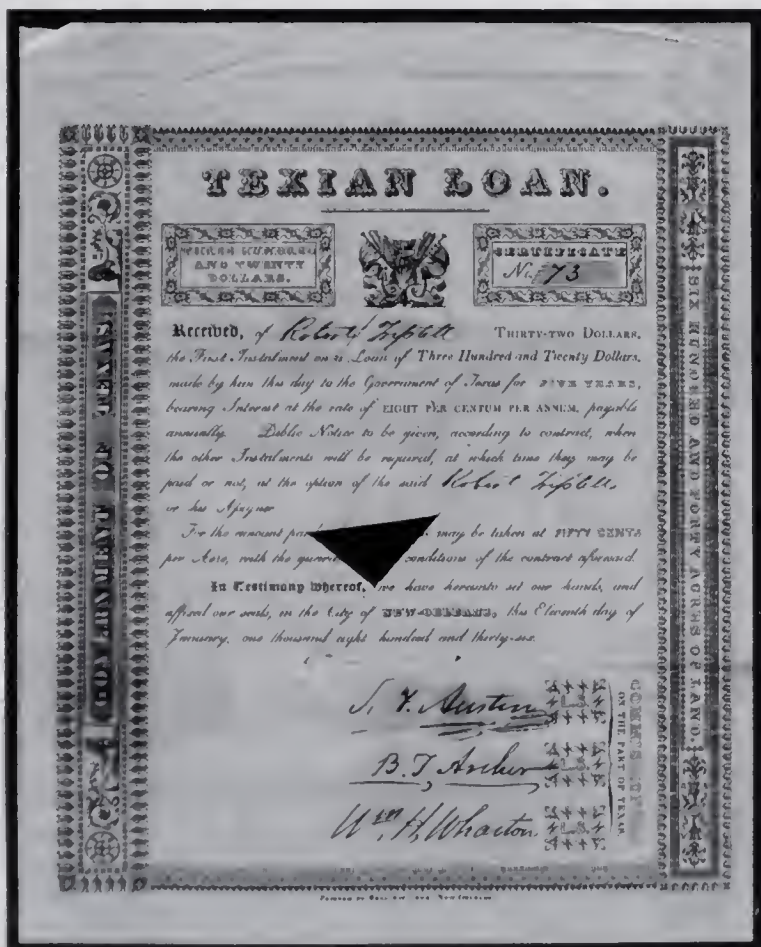 TEXIAN LOAN.
THREE HUNDRED
AND TWENTY
DOLLARS.
CERTIFICATE
No. 73
Received, of Robert Triplett THIRTY-TWO DOLLARS,
the First Instalment on a Loan of Three Hundred and Twenty Dollars,
made by him this day to the Government of Texas for FIVE YEARS,
bearing Interest at the rate of EIGHT PER CENTUM PER ANNUM, payable
annually. Public Notice to be given, according to contract, when
the other Instalments will be required, at which time they may be
paid or not, at the option of the said Robert Triplett
or his Assigns
For the amount may be taken at FIFTY CENTS
per Acre, with the conditions of the contract aforesaid.
In Testimony whereof, we have hereunto set our hands, and
affixed our seals, in the City of NEW-ORLEANS, this Eleventh day of
January, one thousand eight hundred and thirty-six.
S. F. Austin L.S.
B. T. Archer L.S.
Wm. H. Wharton L.S.
ON THE PART OF TEXAS.
GOVERNMENT OF TEXAS.
SIX HUNDRED AND FORTY ACRES OF LAND.